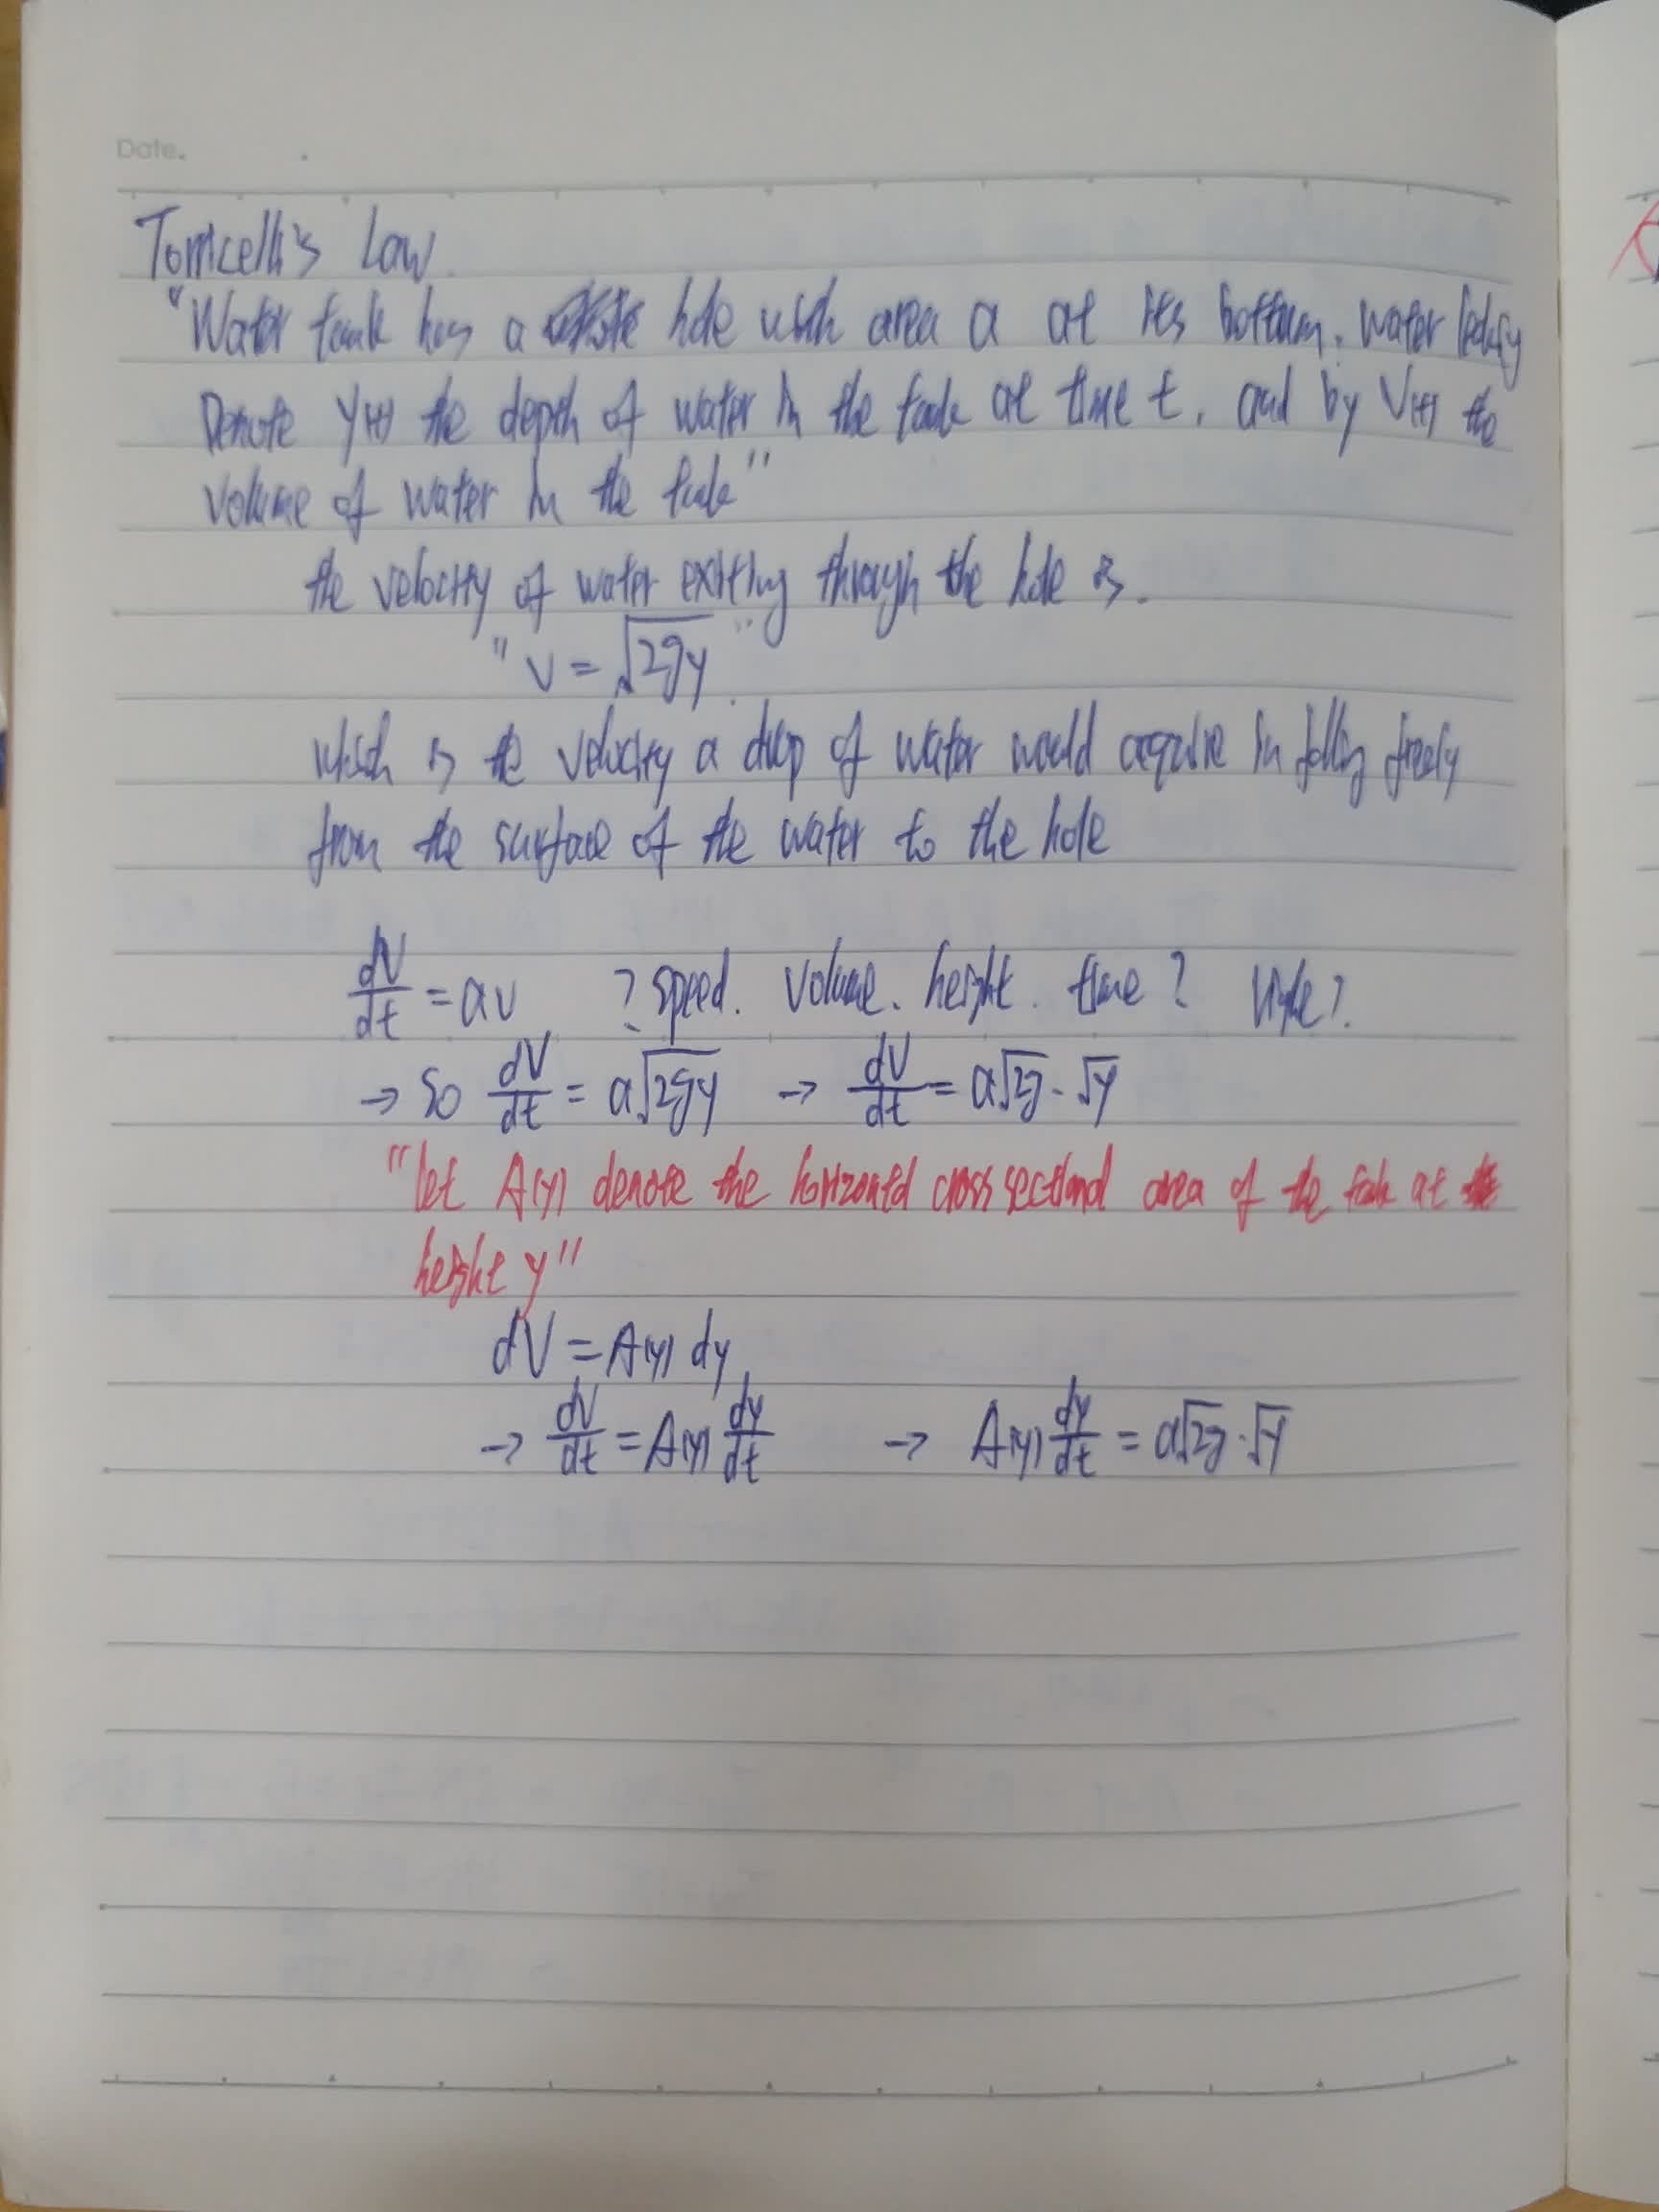 Date.
Torricelli's Law.
"Water tank has a hole with area a at its bottom. water leaking
Denote y(t) the depth of water in the tank at time t, and by V(t) the
volume of water in the tank"
the velocity of water exiting through the hole is.
"v = √2gy"
which is the velocity a drop of water would acquire in falling freely
from the surface of the water to the hole
dV/dt = av ? speed. volume. height. time?
→ so dV/dt = a√2gy → dV/dt = a√2g · √y
"let A(y) denote the horizontal cross sectional area of the tank at
height y"
dV = A(y) dy
→ dV/dt = A(y) dy/dt → A(y) dy/dt = a√2g · √y